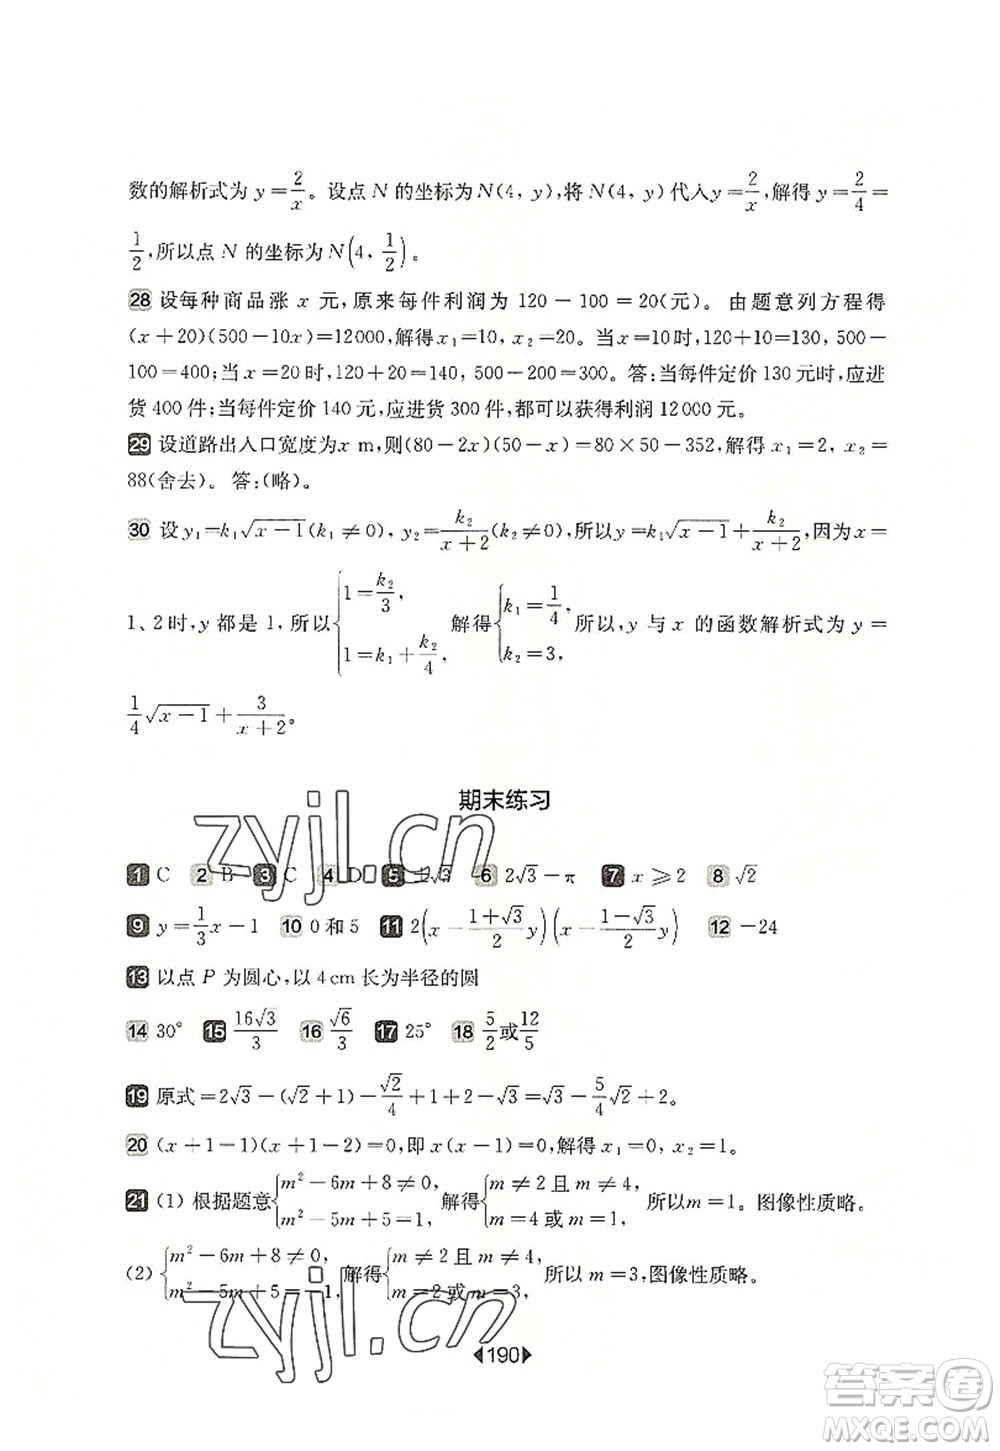 数的解析式为 y=2/x。设点 N 的坐标为 N(4, y),将 N(4, y) 代入 y=2/x,解得 y=2/4=
1/2,所以点 N 的坐标为 N(4, 1/2)。
28 设每种商品涨 x 元,原来每件利润为 120-100=20(元)。由题意列方程得
(x+20)(500-10x)=12000,解得 x₁=10, x₂=20。当 x=10 时,120+10=130, 500-
100=400;当 x=20 时,120+20=140, 500-200=300。答:当每件定价 130 元时,应进
货 400 件;当每件定价 140 元,应进货 300 件,都可以获得利润 12000 元。
29 设道路出入口宽度为 x m,则(80-2x)(50-x)=80×50-352,解得 x₁=2, x₂=
88(舍去)。答:(略)。
30 设 y₁=k₁√(x-1)(k₁≠0), y₂=k₂/(x+2)(k₂≠0),所以 y=k₁√(x-1)+k₂/(x+2),因为 x=
1、2 时,y 都是 1,所以{1=k₂/3, 1=k₁+k₂/4, 解得{k₁=1/4, k₂=3, 所以,y 与 x 的函数解析式为 y=
1/4√(x-1)+3/(x+2)。
期末练习
1 C 2 B 3 C 4 D 5 ±2√3 6 2√3-π 7 x≥2 8 √2
9 y=1/3x-1 10 0 和 5 11 2(x-(1+√3)/2 y)(x-(1-√3)/2 y) 12 -24
13 以点 P 为圆心,以 4 cm 长为半径的圆
14 30° 15 16√3/3 16 √6/3 17 25° 18 5/2或12/5
19 原式=2√3-(√2+1)-√2/4+1+2-√3=2+√3-5/4√2。
20 (x+1-1)(x+1-2)=0,即 x(x-1)=0,解得 x₁=0, x₂=1。
21 (1) 根据题意{m²-6m+8≠0, m²-5m+5=1, 解得{m≠2 且 m≠4, m=4 或 m=1, 所以m=1。图像性质略。
(2) {m²-6m+8≠0, m²-5m+5=-1, 解得{m≠2 且 m≠4, m=2 或 m=3, 所以 m=3,图像性质略。
190
zyjl.cn
zyjl.cn
答案圈
MXQE.COM